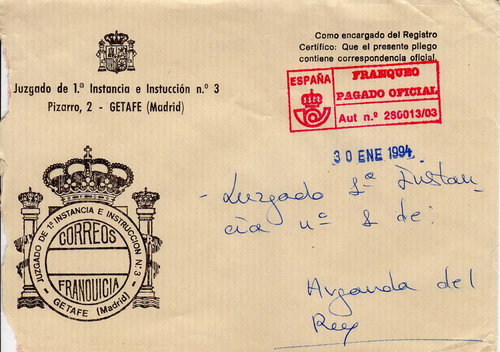 Como encargado del Registro
Certifico: Que el presente pliego
contiene correspondencia oficial.
Juzgado de 1.ª Instancia e Instucción n.º 3
Pizarro, 2 - GETAFE (Madrid)
ESPAÑA
FRANQUEO
PAGADO OFICIAL
Aut n.º 280013/03
30 ENE 1994
JUZGADO DE 1ª INSTANCIA E INSTRUCCION Nº 3
CORREOS
FRANQUICIA
GETAFE (Madrid)
- Juzgado 1ª Instan
cia nº 2 de:
Arganda del
Rey